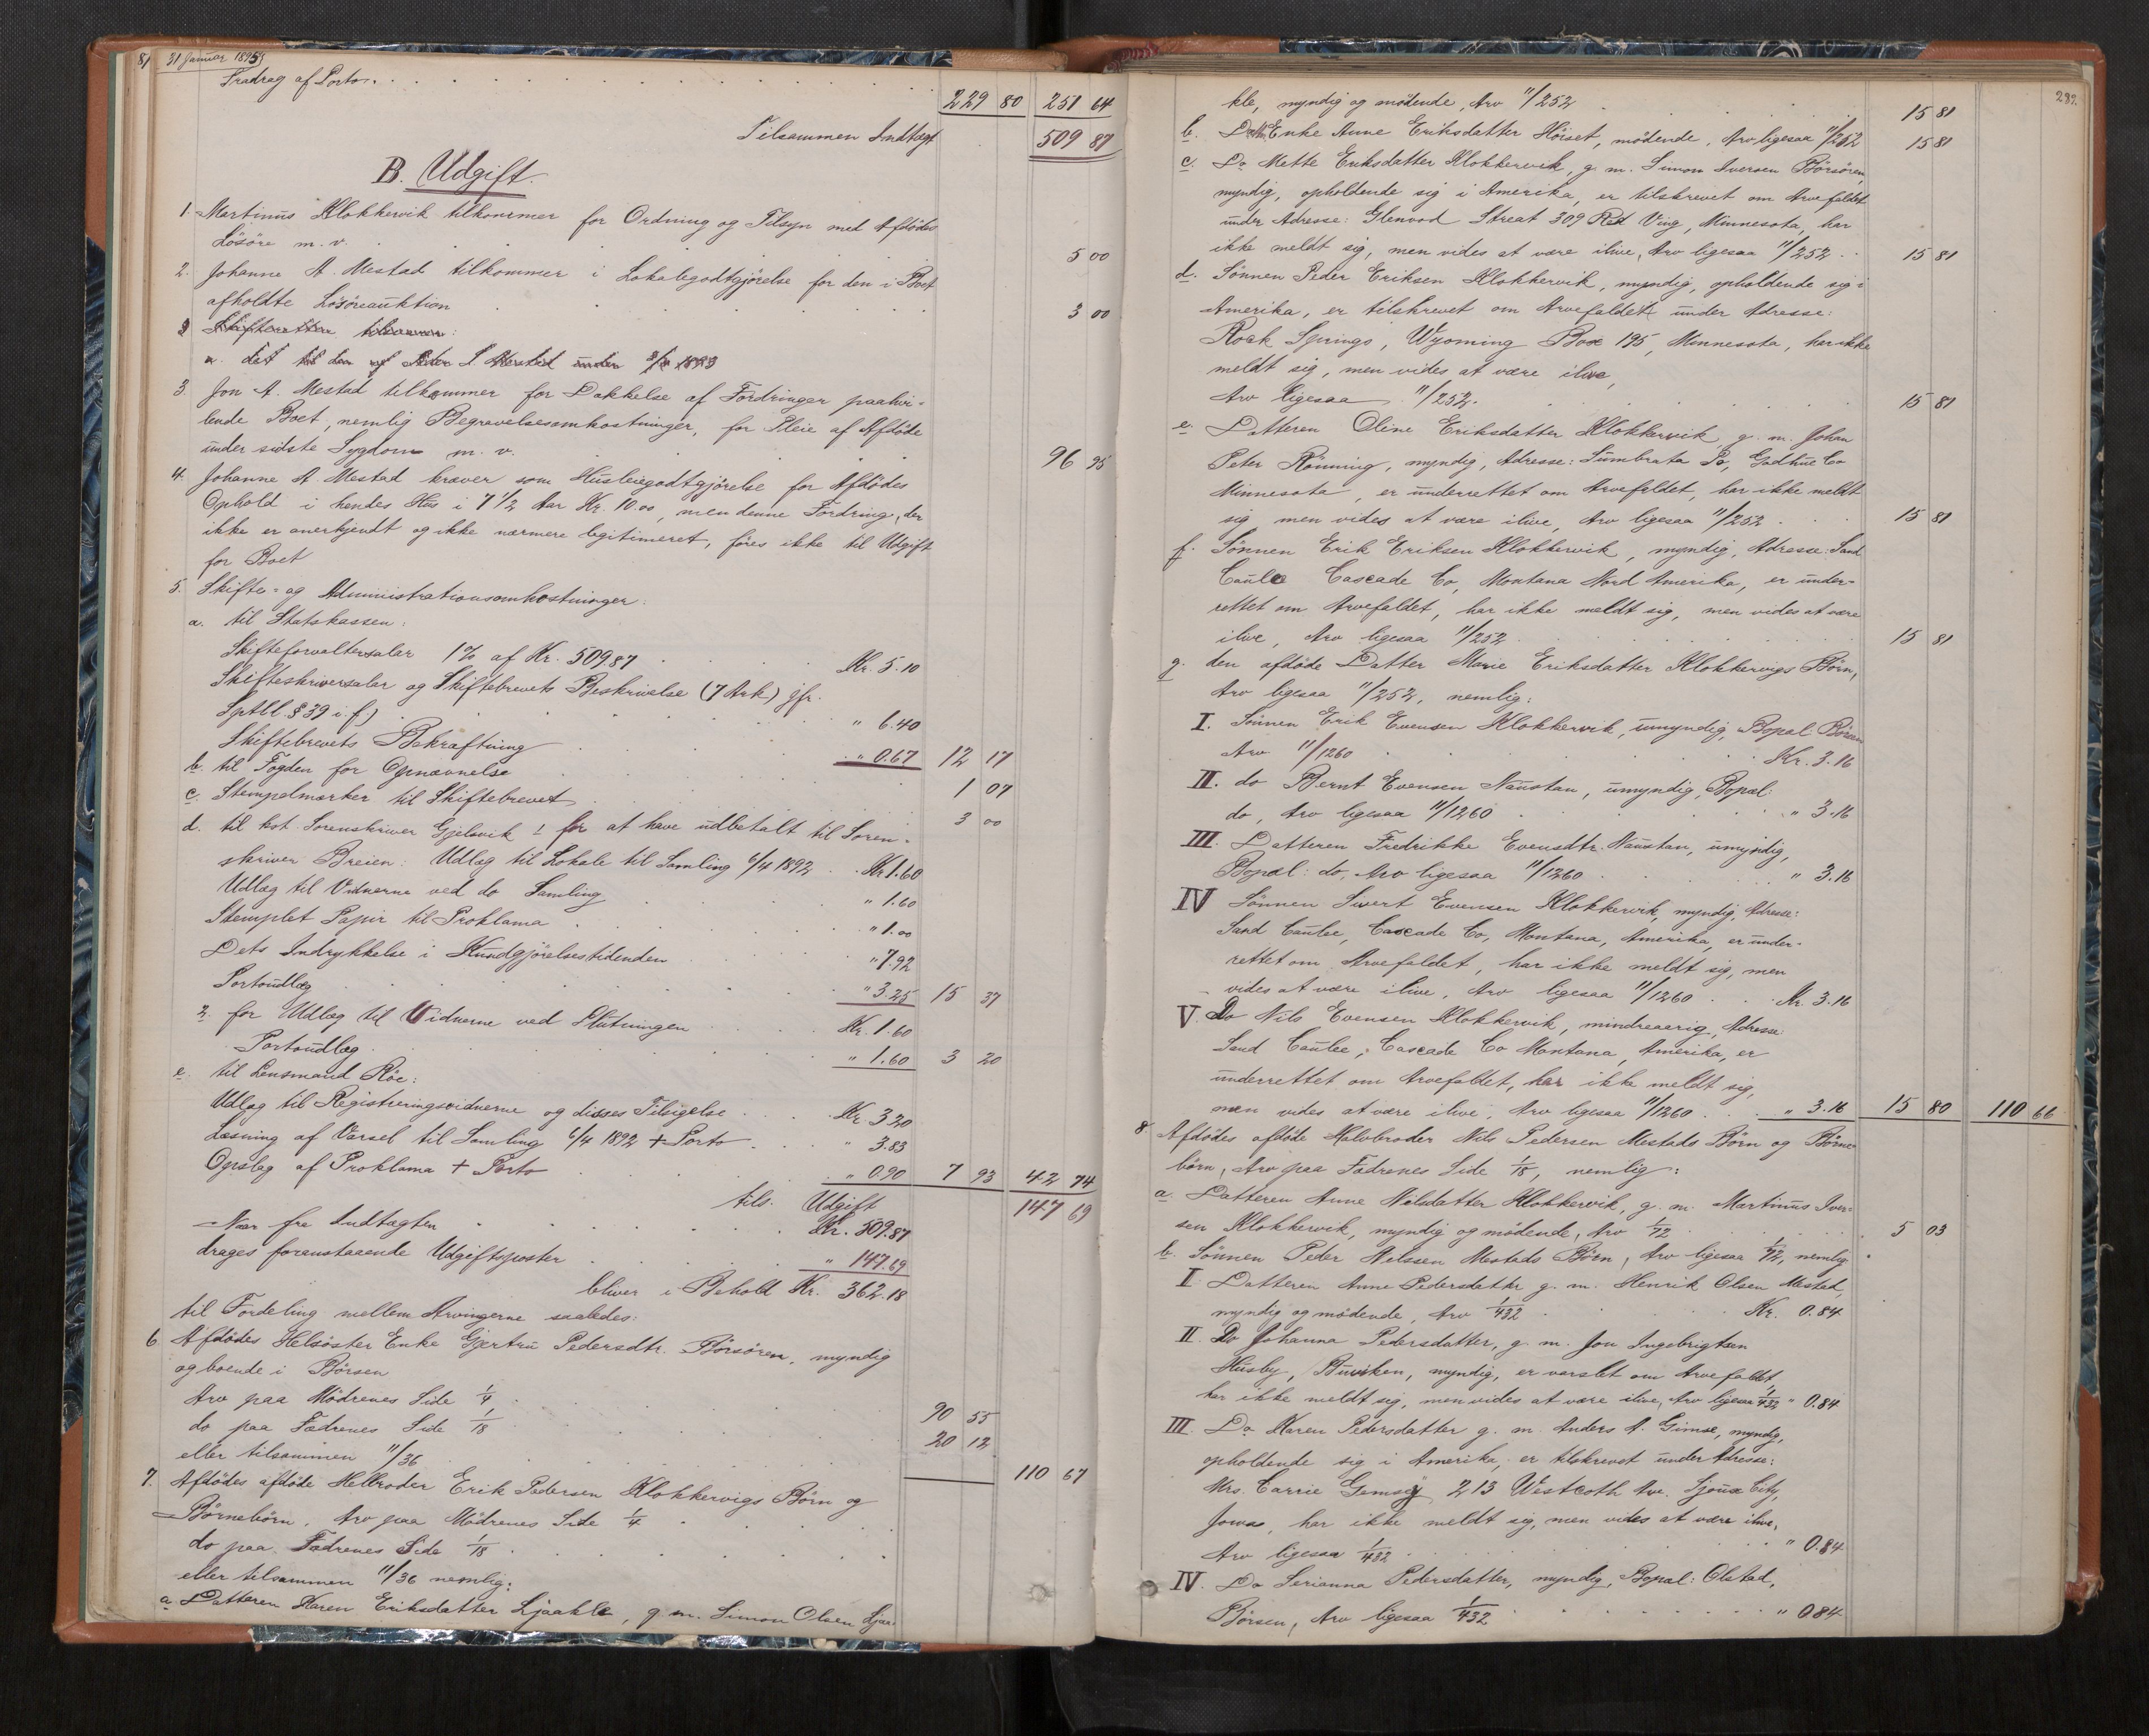 81 31 Januar 1895
Fradrag af Porto. 229 80 251 64
Tilsammen Indtægt 509 87
B. Udgift.
1. Martinus Klokkervik tilkommer for Ordning og Tilsyn med Afdødes
Løsøre m. v. 5 00
2. Johanne A. Mestad tilkommer i Lokalegodtgjørelse for den i Boet
afholdte Løsøreauktion 3 00
3 Skifteretten tilkommer:
a. det
3. Jon A. Mestad tilkommer for Dækkelse af Fordringer paahvi-
lende Boet, nemlig Begravelsesomkostninger, for Pleie af Afdøde
under sidste Sygdom m. v. 96 95
4. Johanne A. Mestad kræver som Husleiegodtgjørelse for Afdødes
Ophold i hendes Hus i 7 1/2 Aar Kr. 10.00, men denne Fordring, der
ikke er anerkjendt og ikke nærmere legitimeret, føres ikke til Udgift
for Boet
5. Skifte- og Administrationsomkostninger:
a. til Statskassen:
Skifteforvaltersalær 1% af Kr. 509.87 Kr. 5.10
Skifteskriversalær og Skiftebrevets Beskrivelse (7 Ark) jfr.
Sptll. § 39 i. f.) " 6.40
Skiftebrevets Bekræftning " 0.67 12 17
b. til Fogden for Opnævnelse 1 07
c. Stempelmærker til Skiftebrevet 3 00
d. til kst. Sorenskriver Gjelsvik 1 for at have udbetalt til Soren-
skriver Breien: Udlæg til Lokale til Samling 6/4 1892 Kr. 1.60
Udlæg til Vidnerne ved do Samling " 1.60
Stemplet Papir til Proklama " 1.00
Dets Indrykkelse i Kundgjørelsestidenden " 7.92
Portoudlæg " 3.25 15 37
2. for Udlæg til Vidnerne ved Slutningen Kr. 1.60
Portoudlæg " 1.60 3 20
e. til Lensmand Röe:
Udlæg til Registreringsvidnerne og disses Tilsigelse Kr. 3 20
Læsning af Varsel til Samling 6/4 1892 + Porto " 3.83
Opslag af Proklama + Porto " 0.90 7 93 42 74
tils. Udgift 147 69
Naar fra Indtægten Kr. 509.87
drages foranstaaende Udgiftsposter " 147.69
bliver i Behold Kr. 362.18
til Fordeling mellem Arvingerne saaledes:
6. Afdødes Helsøster Enke Gjertru Pedersdtr. Börsören, myndig
og boende i Börsen
Arv paa Mødrenes Side 1/4 90 55
do paa Fædrenes Side 1/18 20 12
eller tilsammen 11/36 110 67
7. Afdødes afdøde Helbroder Erik Pedersen Klokkervigs Børn og
Børnebørn, Arv paa Mødrenes Side 1/4
do paa Fædrenes Side 1/18
eller tilsammen 11/36 nemlig:
a Datteren Karen Eriksdatter Ljaakle, g. m. Simon Olsen Ljaa-
282.
kle, myndig og mødende, Arv 11/252 15 81
b. Datt. Enke Anne Eriksdatter Höiset, mødende, Arv ligesaa 11/252 15 81
c. Do Mette Eriksdatter Klokkervik, g. m. Simon Iversen Börsören,
myndig, opholdende sig i Amerika, er tilskrevet om Arvefaldet
under Adresse: Glenvod Streat 309 Red Ving, Minnesota, har
ikke meldt sig, men vides at være ilive, Arv ligesaa 11/252 15 81
d. Sønnen Peder Eriksen Klokkervik, myndig, opholdende sig i
Amerika, er tilskrevet om Arvefaldet under Adresse:
Rock Springs, Wyoming Box 195, Minnesota, har ikke
meldt sig, men vides at være ilive,
Arv ligesaa 11/252. 15 81
e. Datteren Oline Eriksdatter Klokkervik g. m. Johan
Peter Rönning, myndig, Adresse: Sumbrata Po, Godhue Co
Minnesota, er underrettet om Arvefaldet, har ikke meldt
sig men vides at være ilive, Arv ligesaa 11/252 15 81
f. Sønnen Erik Eriksen Klokkervik, myndig, Adresse: Sand
Caulee Cascade Co, Montana Nord Amerika, er under-
rettet om Arvefaldet, har ikke meldt sig, men vides at være
ilive, Arv ligesaa 11/252 15 81
g. den afdøde Datter Marie Eriksdatter Klokkervigs Børn,
Arv ligesaa 11/252, nemlig:
I. Sønnen Erik Evensen Klokkervik, umyndig, Bopæl Börsen
Arv 11/1260 Kr. 3.16
II. do Bernt Evensen Naustan, umyndig, Bopæl:
do, Arv ligesaa 11/1260 " 3.16
III. Datteren Fredrikke Evensdtr. Naustan, umyndig,
Bopæl: do, Arv ligesaa 11/1260 " 3.16
IV Sønnen Sivert Evensen Klokkervik, myndig, Adresse:
Sand Caulee, Cascade Co, Montana, Amerika, er under-
rettet om Arvefaldet, har ikke meldt sig, men
vides at være ilive, Arv ligesaa 11/1260 Kr. 3.16
V. Do Nils Evensen Klokkervik, mindreaarig, Adresse:
Sand Caulee, Cascade Co Montana, Amerika, er
underrettet om Arvefaldet, har ikke meldt sig,
men vides at være ilive, Arv ligesaa 11/1260 " 3.16 15 80 110 66
8 Afdødes afdøde Halvbroder Nils Pedersen Mestads Børn og Børne-
børn, Arv paa Fædrenes Side 1/18, nemlig:
a. Datteren Anne Nilsdatter Klokkervik, g. m. Martinus Iver-
sen Klokkervik, myndig og mødende, Arv 1/72 5 03
b. Sønnen Peder Nilssen Mestads Børn, Arv ligesaa 1/72, nemlig
I. Datteren Anne Pedersdatter g. m. Henrik Olsen Mestad,
myndig og mødende, Arv 1/432 Kr. 0.84
II. Do Johanna Pedersdatter, g. m. Jon Ingebrigtsen
Husby, Buviken, myndig, er varslet om Arvefaldet,
har ikke meldt sig, men vides at være ilive, Arv ligesaa 1/432 " 0.84
III. Do Karen Pedersdatter g. m. Anders A. Gimse, myndig,
opholdende sig i Amerika, er tilskrevet under Adresse:
Mrs. Carrie Gemsy 213 Westcoth Ave. Sjoux City,
Jowa, har ikke meldt sig, men vides at være ilive,
Arv ligesaa 1/432 " 0.84
IV. Do Serianna Pedersdatter, myndig, Bopæl: Olstad,
Börsen, Arv ligesaa 1/432 " 0 84